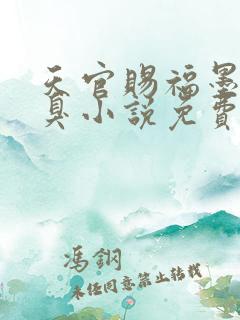 天官赐福墨
臭小说免费
冯钢
未经同意禁止转载